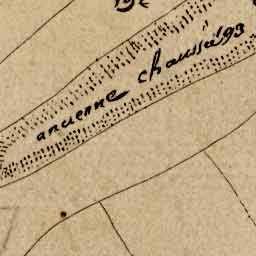 De
ancienne chaussée 93